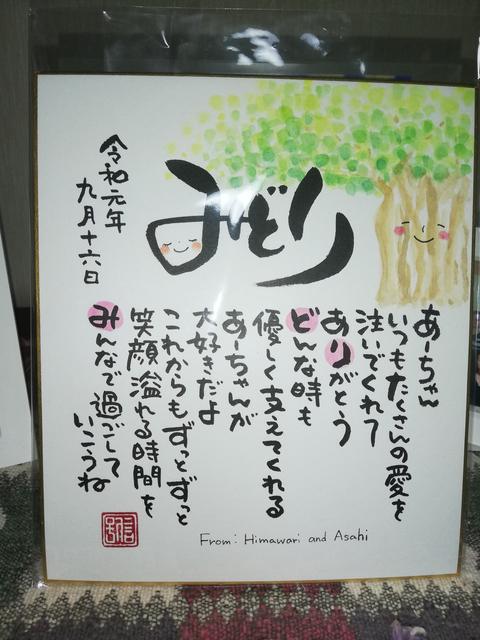 みどり
令和元年
九月十六日
あーちゃん
いつもたくさんの愛を
注いでくれて
ありがとう
どんな時も
優しく支えてくれる
あーちゃんが
大好きだよ
これからもずっとずっと
笑顔溢れる時間を
みんなで過ごして
いこうね
From: Himawari and Asahi